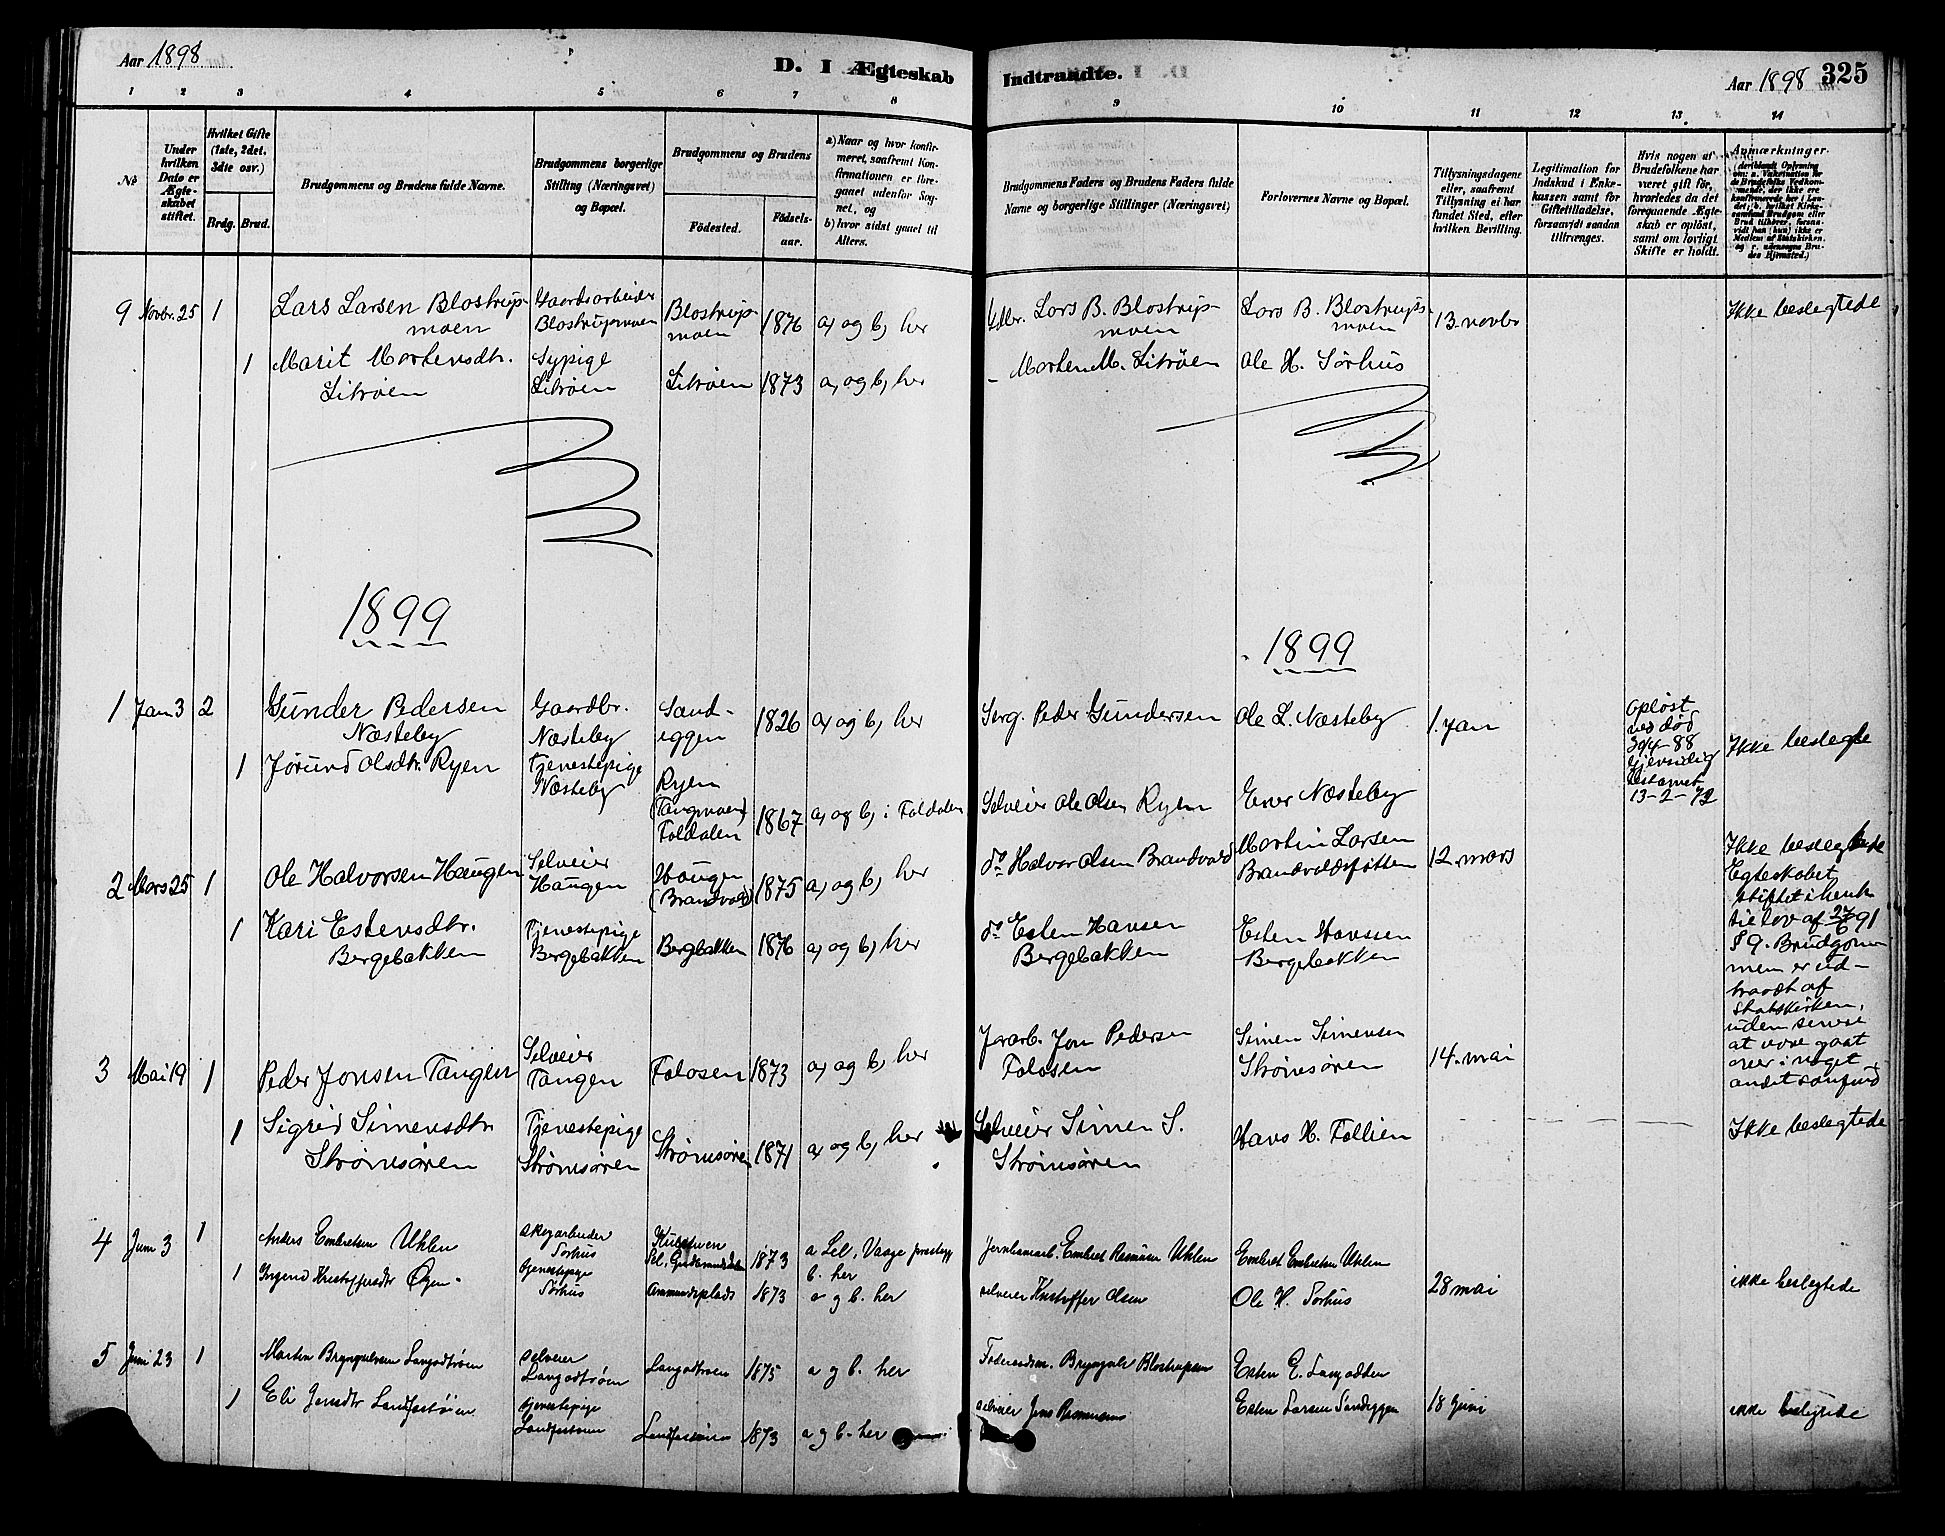 Aar 1898
D. I Ægteskab Indtraadte.
Aar 1898 325
1 2 3 4 5 6 7 8 9 10 11 12 13 14
№
Under hvilken Dato er Ægteskabet stiftet.
Hvilket Gifte (1ste, 2det, 3dte osv.)
Brdg. Brud.
Brudgommens og Brudens fulde Navne.
Brudgommens borgerlige Stilling (Næringsvei) og Bopæl.
Brudgommens og Brudens
Födested. Födselsaar.
a) Naar og hvor konfirmeret, saafremt Konfirmationen er foregaaet udenfor Sognet, og
b) hvor sidst gaaet til Alters.
Brudgommens Faders og Brudens Faders fulde Navne og borgerlige Stillinger (Næringsvei)
Forlovernes Navne og Bopæl.
Tillysningsdagene eller, saafremt Tillysning ei har fundet Sted, efter hvilken Bevilling.
Legitimation for Indskud i Enkekassen samt for Giftetilladelse, forsaavidt saadan tiltrænges.
Hvis nogen af Brudefolkene har været gift för, hvorledes da det foregaaende Ægteskab er oplöst, samt om lovligt Skifte er holdt.
Anmærkninger
9 Novbr. 25 1 Lars Larsen Blostrupmoen Gaardsarbeider Blostrupmoen Blostrupmoen 1876 a, og b, her Gdbr. Lars B. Blostrupmoen Lars B. Blostrupmoen 13 novbr Ikke beslegtede
1 Marit Mortensdtr. Litrøen Sypige Litrøen Litrøen 1873 a, og b, her - Morten M. Litrøen Ole H. Sørhus
1899
1899
1 Jan 3 2 Gunder Pedersen Næsteby Gaardbr. Næsteby Sandeggen 1826 a, og b, her Serg. Peder Gundersen Ole L. Næsteby 1. Jan opløst ved død 30/4-88 Gjensidig Testamet 13-2-72 Ikke beslegte
1 Jørund Olsdtr. Ryen Tjenestepige Næsteby Ryen (Tangmoen) Foldalen 1867 a, og b, i Foldalen Selveier Ole Olsen Ryen Ener Næsteby
2 Mars 25 1 Ole Halvorsen Haugen Selveier Haugen Haugen (Brandvold) 1875 a, og b, her do Halvor Olsen Brandvold Martin Larsen Brandvoldsflotten 12. mars Ikke beslegtede
Egteskabet stiftet i henh til lov af 27/6 91 § 9. Brudgommen er udtraadt af Statskirken, uden senere at vore gaat over i noget andet samfund
1 Kari Estensdtr. Bergebakken Tjenestepige Bergebakken Bergbakken 1876 a, og b, her do Esten Hansen Bergebakken Esten Hanssen Bergebakken
3 Mai 19 1 Peder Jonsen Tangen Selveier Tangen Folosen 1873 a, og b, her Jernarb. Jon Pedersen Folosen Simen Simensen Strømsøren 14. mai
1 Sigrid Simensdtr Strømsøren Tjenestepige Strømsøren Strømsøren 1871 a, og b, her Selveier Simen S. Strømsøren Hans H. Follien Ikke beslegtede
4 Juni 3 1 Anders Embretsen Uhlen skogarbeider Sorhus Sel, Gudbrandsdalen 1873 a Sel, Vaage b. her Embret Rasmusen Uhlen Embret Embretsen Uhlen
1 Ingend Kristoffersdtr Øyen tjenestepige Sorhus Ammundsplads 1873 a og b. her selveier Kristoffer Olsen Ole H. Sorhus 28 mai ikke beslegtede
5 Juni 23 1 Martin Bryngelsen Langodtrøen selveier Langodtrøen Langodtroen 1875 a og b. her Bryngel Blostrupmoen Esten E. Langodden
1 Eli Jensdtr Landfastøien tjenestepige Landfastøien Landfastøien 1873 a og b. her selveier Jens Rasmusens Esten Larsen Sandeggen 18 juni ikke beslegtede